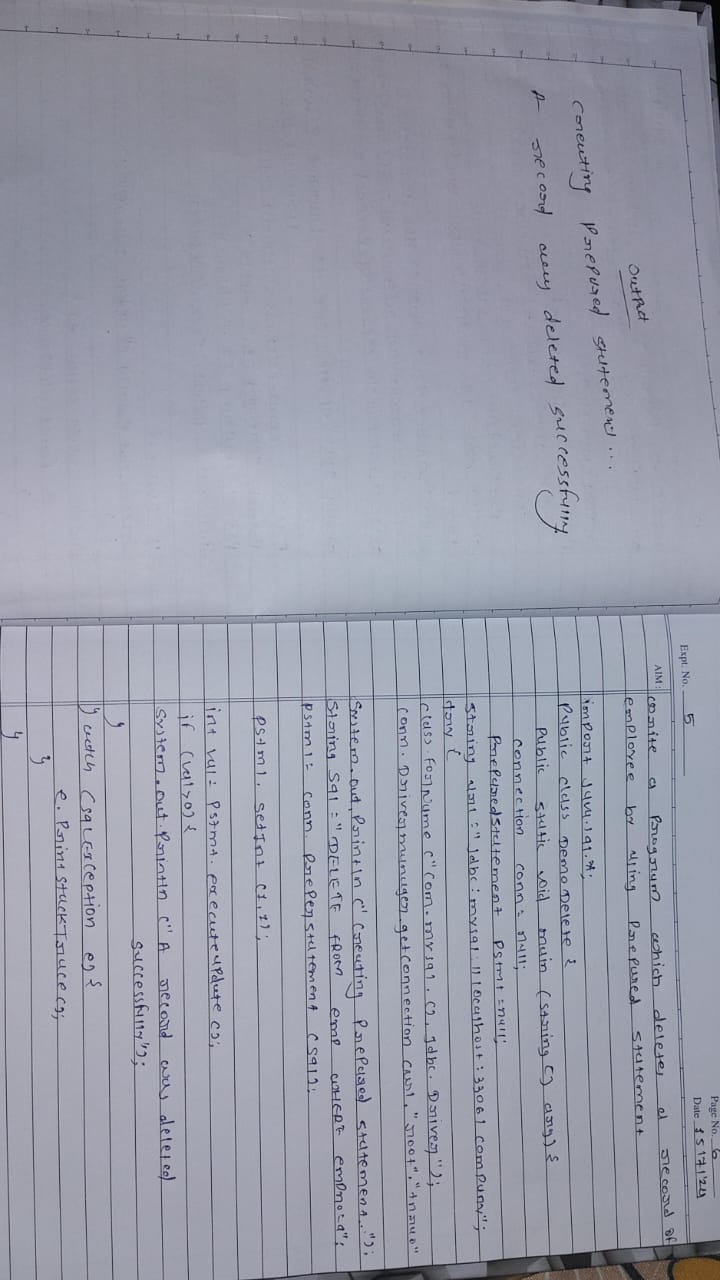 Output
Creating Prepared statement...
A record was deleted successfully
Page No. 6
Expt. No. 5
Date 15/7/24
AIM: write a Program which delete, a record of
employee by using Prepared statement
import java.sql.*;
Public class DemoDelete {
Public static void main (string [] args) {
connection conn = null;
Preparedstatement Pstmt = null;
string url = "jdbc:mysql://localhost:3306/company";
try {
class.forName ("com.mysql.cj.jdbc.Driver");
conn. Drivermanager.getconnection (url, "root",
System.out.println ("Creating Prepared statement..");
String sql = "DELETE FROM emp WHERE empno=
pstmt = conn. PrePerstatement (sql);
pstmt. setInt (1,1);
int val = pstmt. executeupdate ();
if (val>0) {
system.out.println (" A record was deleted
successfully");
}
} catch (sqlException e) {
e. PrintstackTrace ();
}
}